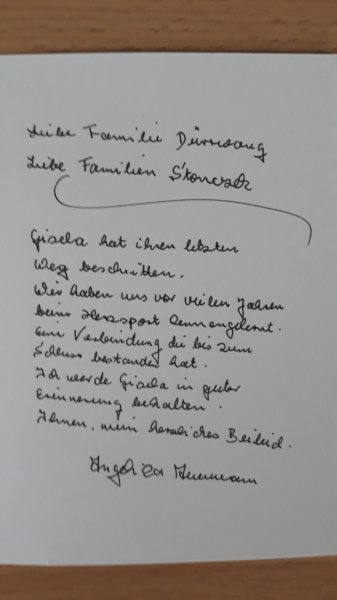 Liebe Familie Dürrwang
Liebe Familien
Gisela hat ihren letzten
Weg beschritten.
Wir haben uns vor vielen Jahren
beim Herzsport kennengelernt.
Eine Verbindung die bis zum
Schluss bestanden hat.
Ich werde Gisela in guter
Erinnerung behalten.
Ihnen, mein herzliches Beileid.